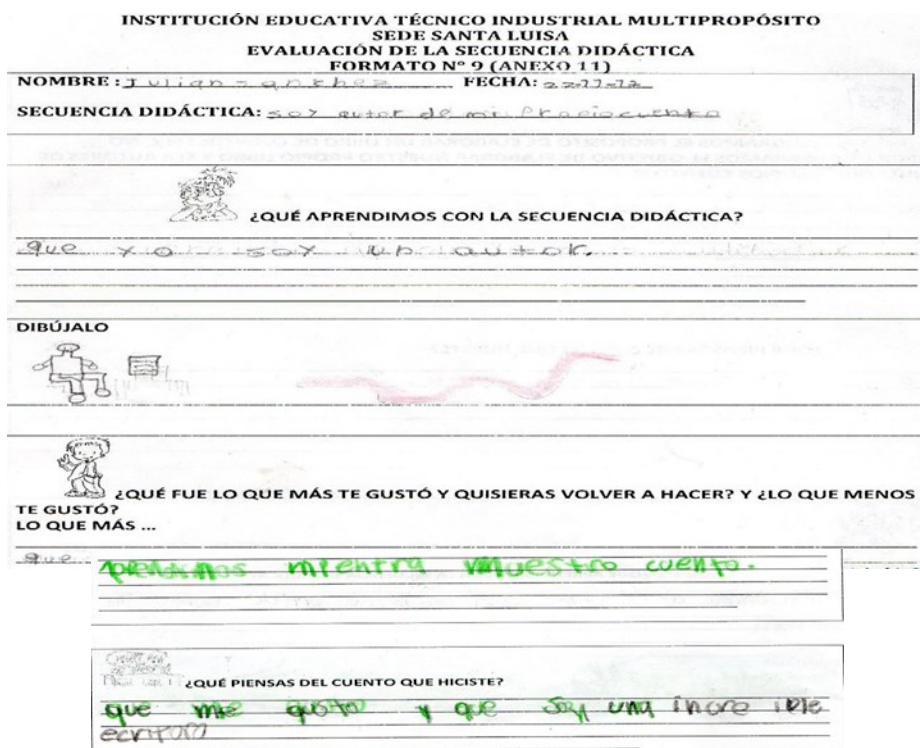 INSTITUCIÓN EDUCATIVA TÉCNICO INDUSTRIAL MULTIPROPÓSITO
SEDE SANTA LUISA
EVALUACIÓN DE LA SECUENCIA DIDÁCTICA
FORMATO Nº 9 (ANEXO 11)
NOMBRE: Julian FECHA:
SECUENCIA DIDÁCTICA: soy autor de mi propio cuento
¿QUÉ APRENDIMOS CON LA SECUENCIA DIDÁCTICA?
que yo soy un autor.
DIBÚJALO
¿QUÉ FUE LO QUE MÁS TE GUSTÓ Y QUISIERAS VOLVER A HACER? Y ¿LO QUE MENOS
TE GUSTÓ?
LO QUE MÁS ...
que
aprendimos mientra nuestro cuento.
¿QUÉ PIENSAS DEL CUENTO QUE HICISTE?
que me gusto y que soy una increible